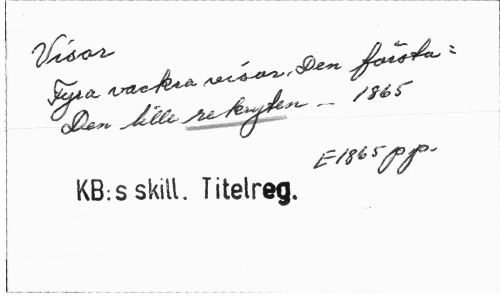 Visor
Fyra vackra visor. Den första:
Den lille rekryten — 1865
E1865 pp.
KB:s skill. Titelreg.